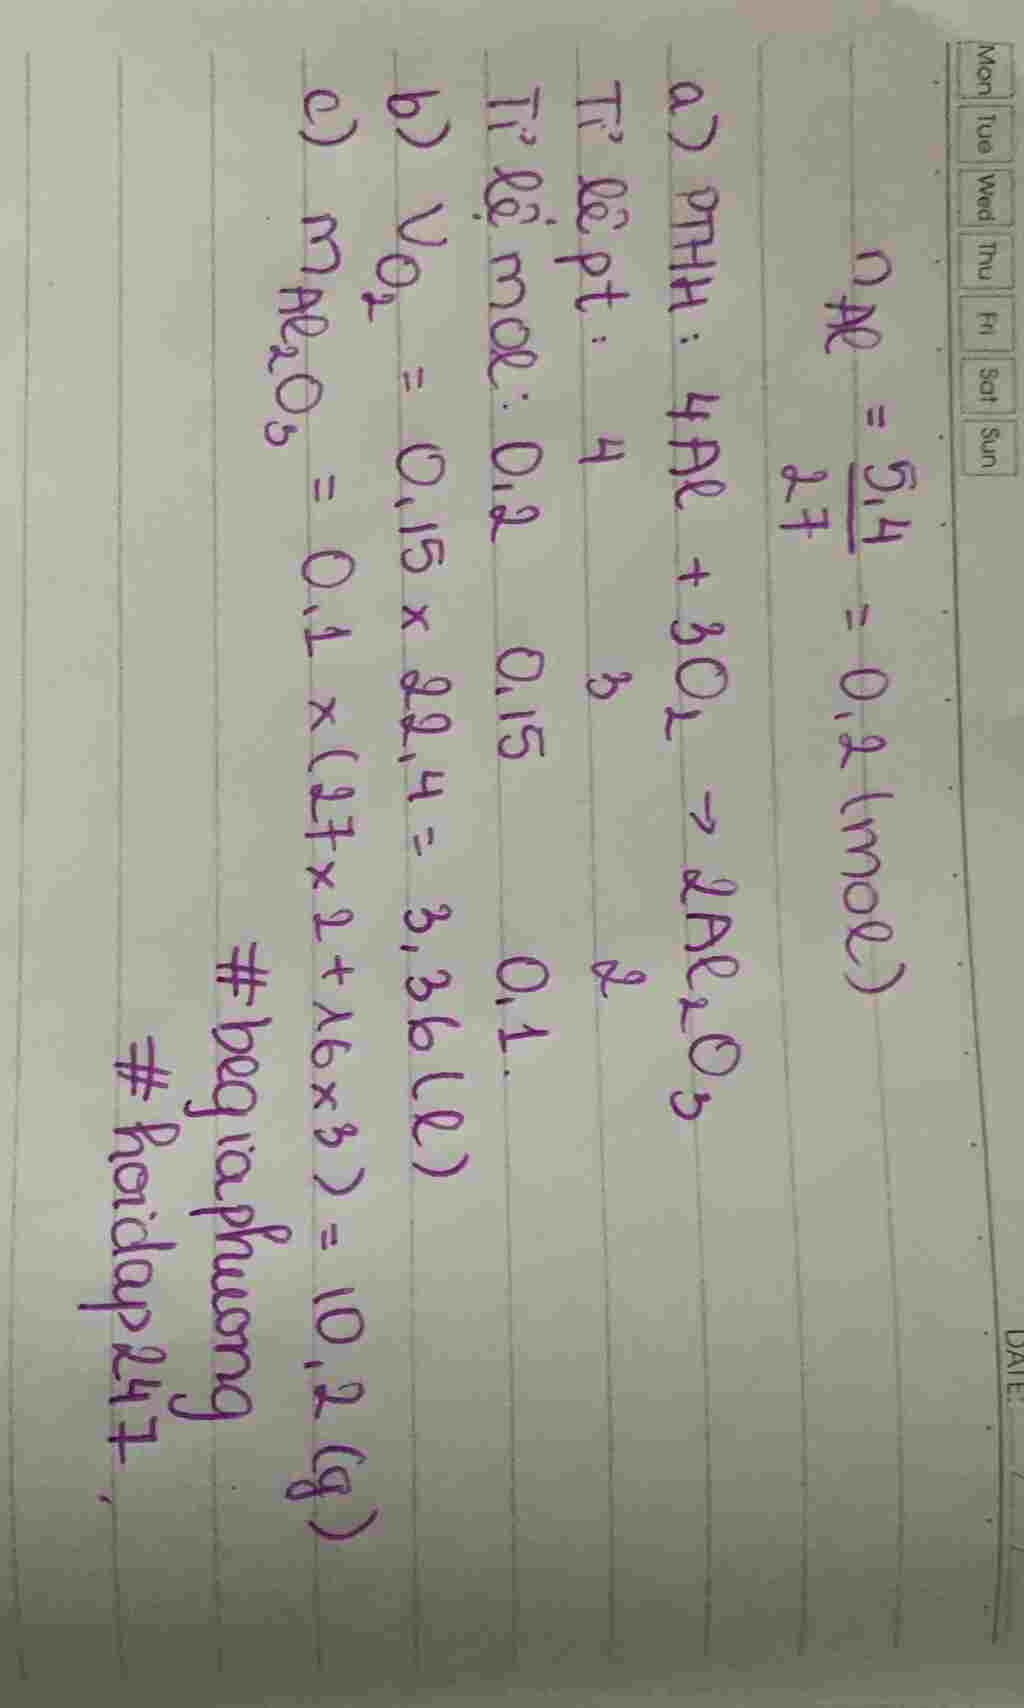 Mon Tue Wed Thu Fri Sat Sun
DATE: / /
nAl = 5,4/27 = 0,2 (mol)
a) PTHH: 4Al + 3O2 → 2Al2O3
Tỉ lệ pt: 4 3 2
Tỉ lệ mol: 0,2 0,15 0,1.
b) VO2 = 0,15 x 22,4 = 3,36 (l)
c) mAl2O3 = 0,1 x (27 x 2 + 16 x 3) = 10,2 (g)
#begiaphuong
#hoidap247